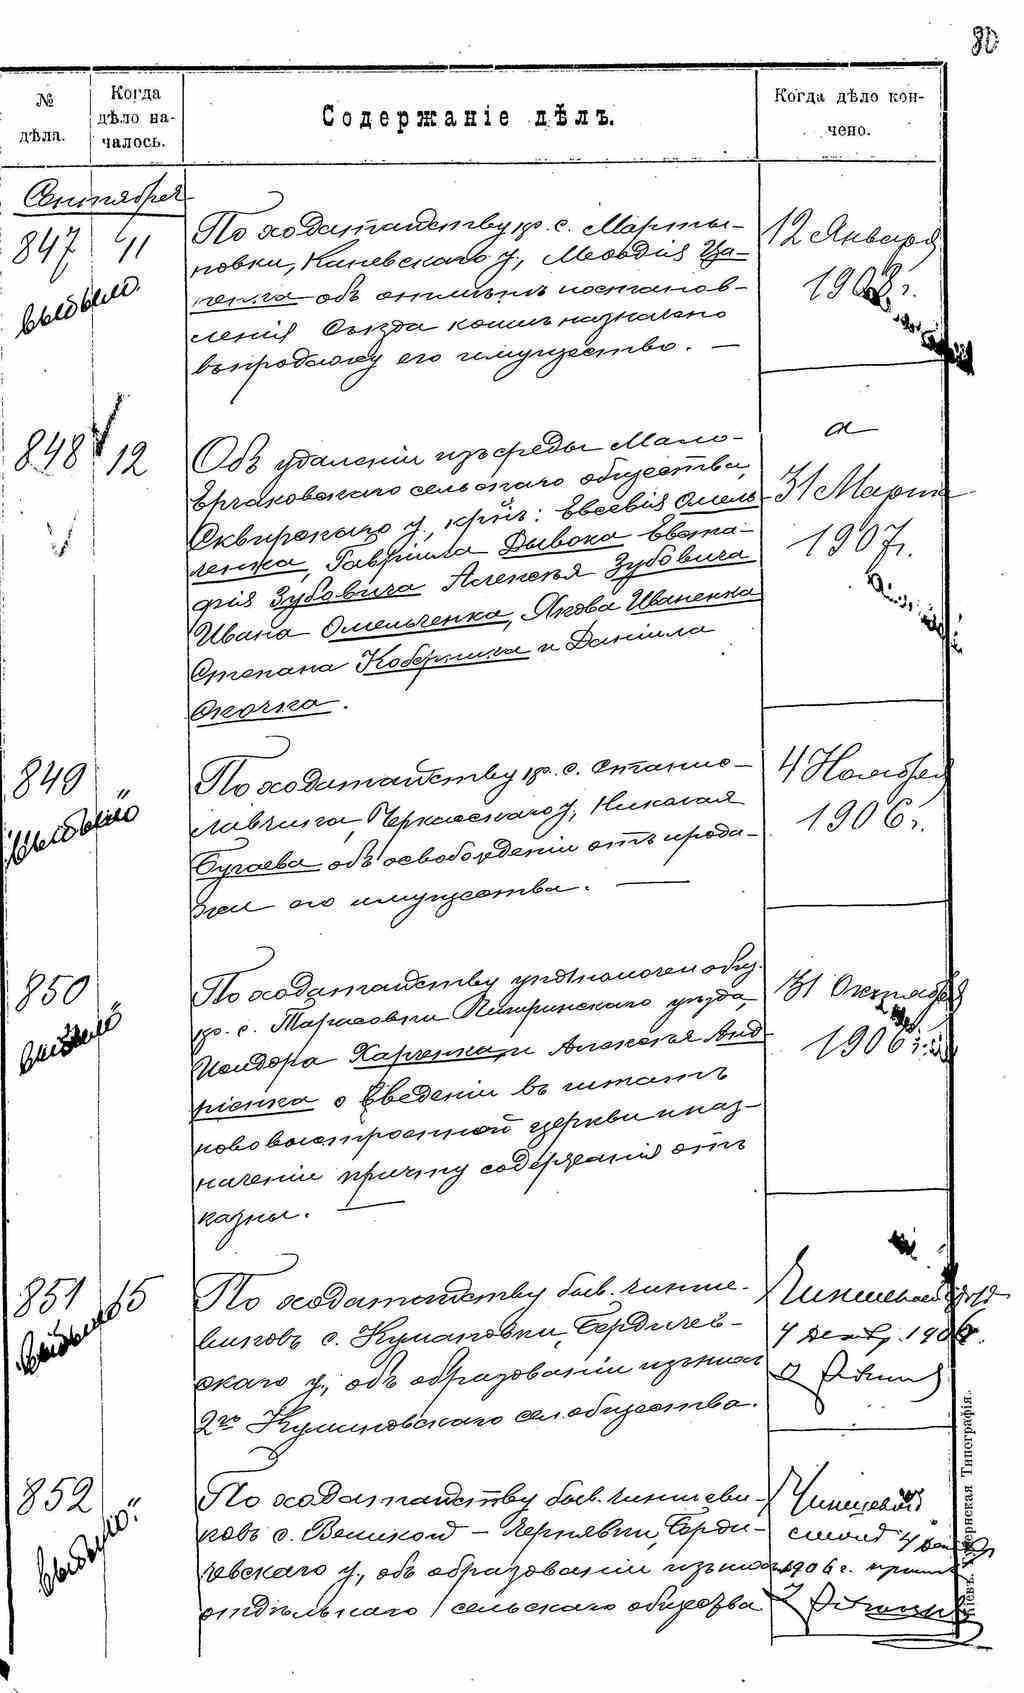 80
№ дѣла.
Когда дѣло на-чалось.
Содержаніе дѣлъ.
Когда дѣло кон-чено.
Сентября
847 11
выбыло
По ходатайству кр. с. Марты-
новки, Каневскаго у., Меѳодія Ца-
объ отмѣнѣ постанов-
ленія Съѣзда коимъ назначено
въ продажу его имущество. —
12 Января
1908 г.
848 12
Объ удаленіи изъ среды Мало-
Ерчиковскаго сельскаго общества,
Сквирскаго у., кр-нъ: Евсевія Омель-
ченка, Гавріила Дывока Евста-
фія Зубовича Алексѣя Зубовича
Ивана Омельченка, Якова Иваненка
Степана Коберника и Даніила
Окочка.
31 Марта
1907 г.
849 "
выбыло
По ходатайству кр. с. Станис-
лавчика, Черкасскаго у., Николая
Бугаева объ освобожденіи отъ прода-
жи его имущества. —
4 Ноября
1906 г.
850 "
выбыло
По ходатайству уполномочен. общ.
кр. с. Тарасовки Звенигородскаго уѣзда,
Исидора Харченка и Алексѣя Анд-
ріенка о введеніи въ штатъ
нововыстроенной церкви и наз-
наченіи причту содержанія отъ
казны. —
31 Октября
1906 г.
851 15
выбыло
По ходатайству быв. чинше-
виковъ с. Кумановки, Бердичев-
скаго у., объ образованіи изъ нихъ
2го Кумановскаго сел. общества.
Чиншевой
4 дек. 1906 г.
852 "
выбыло
По ходатайству быв. чиншеви-
ковъ с. Великой-Чернявки, Берди-
чевскаго у., объ образованіи изъ нихъ
отдѣльнаго сельскаго общества
Чиншевой
столъ 4 дек.
1906 г.
Кіевъ. Губернская Типографія.